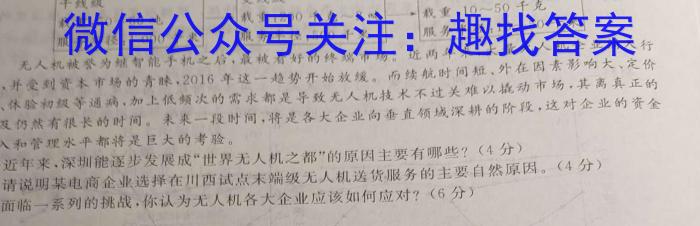 干线级
载重
载重10~50千克
微信公众号关注：趣找答案
无人机被誉为继智能手机之后，最被看好的终端市场。近两年
，并受到资本市场的青睐，2016年这一趋势开始放缓。而续航时间短、外在因素影响大、定价
、体验初级等通病，加上低频次的需求都是导致无人机技术不过关难以撬动市场，其离真正的
及仍然有很长的时间。未来一段时间，将是各大企业向垂直领域深耕的阶段，这对企业的资金
入和管理水平都将是巨大的考验。
近年来，深圳能逐步发展成“世界无人机之都”的原因主要有哪些？(4分)
请说明某电商企业选择在川西试点末端级无人机送货服务的主要自然原因。(4分)
面临一系列的挑战，你认为无人机各大企业应该如何应对？(6分)